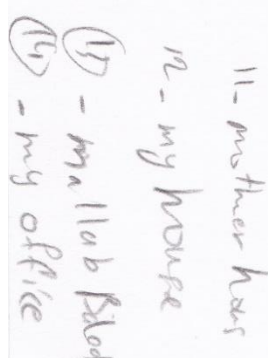 11- mother hous
12- my house
(13) - mallub Bilod
(14) - my office